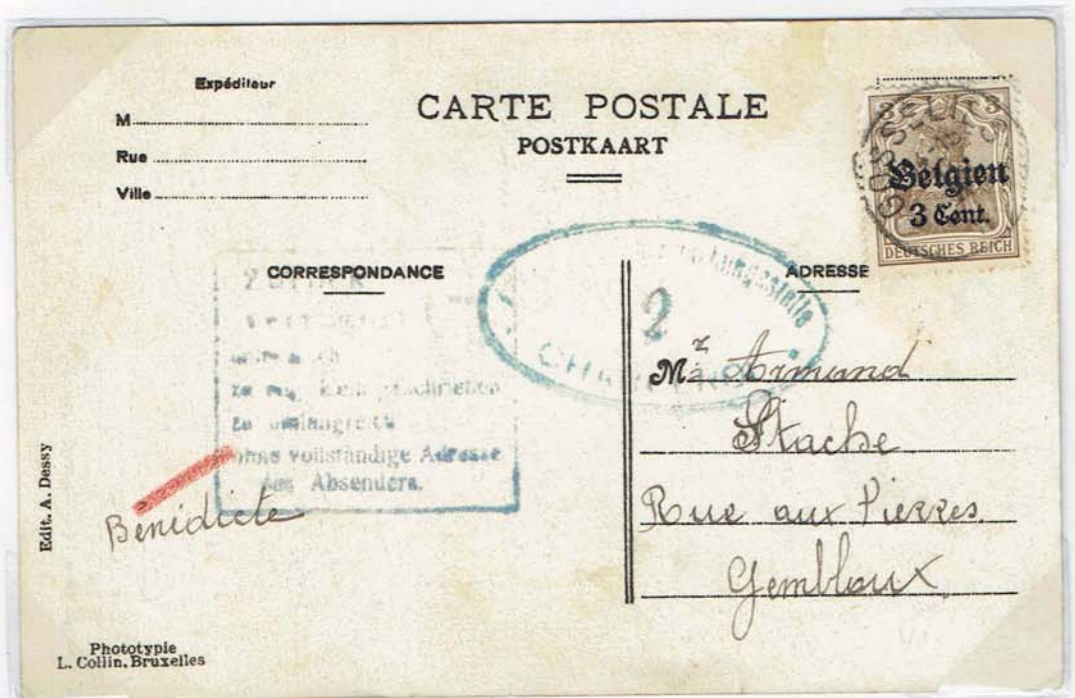 Expéditeur
M
Rue
Ville
CARTE POSTALE
POSTKAART
3 3
Belgien
3 Cent.
DEUTSCHES REICH
GOSSELIES
CORRESPONDANCE
ADRESSE
Zurück
2
zu eng,
zu umfangreich
ohne vollständige Adresse
des Absenders.
Bénédicte
Mr Armand
Stache
Rue aux Pierres.
Gembloux
Edit. A. Dessy
Phototypie
L. Collin, Bruxelles